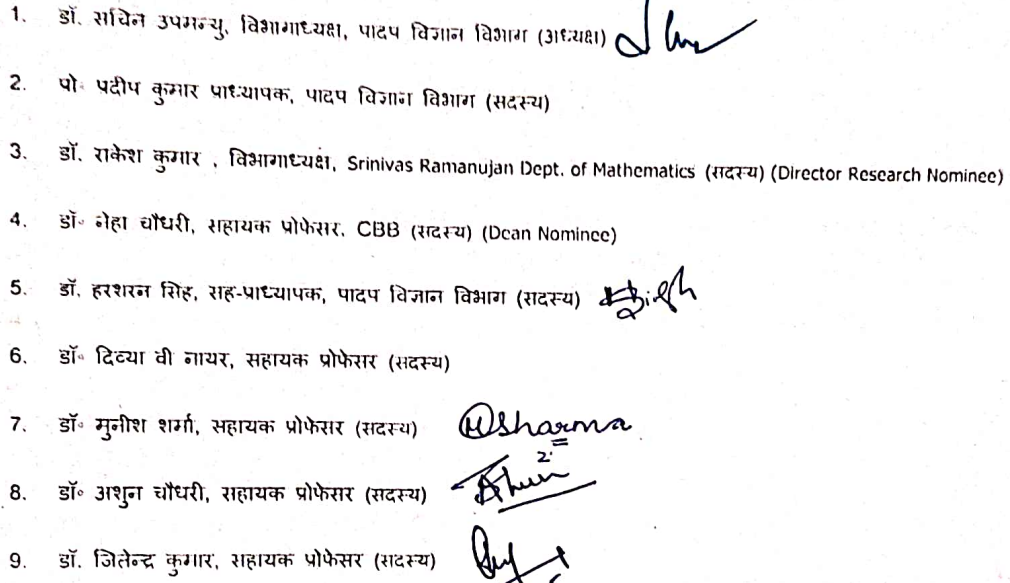 1. डॉ. सचिन उपमन्यु, विभागाध्यक्ष, पादप विज्ञान विभाग (अध्यक्ष)
2. पो॰ प्रदीप कुमार प्राध्यापक, पादप विज्ञान विभाग (सदस्य)
3. डॉ. राकेश कुमार , विभागाध्यक्ष, Srinivas Ramanujan Dept. of Mathematics (सदस्य) (Director Research Nominee)
4. डॉ॰ नेहा चौधरी, सहायक प्रोफेसर, CBB (सदस्य) (Dean Nominee)
5. डॉ. हरशरन सिंह, सह-प्राध्यापक, पादप विज्ञान विभाग (सदस्य) Singh
6. डॉ॰ दिव्या वी नायर, सहायक प्रोफेसर (सदस्य)
7. डॉ॰ मुनीश शर्मा, सहायक प्रोफेसर (सदस्य) MSharma
8. डॉ॰ अशुन चौधरी, सहायक प्रोफेसर (सदस्य)
9. डॉ. जितेन्द्र कुमार, सहायक प्रोफेसर (सदस्य)